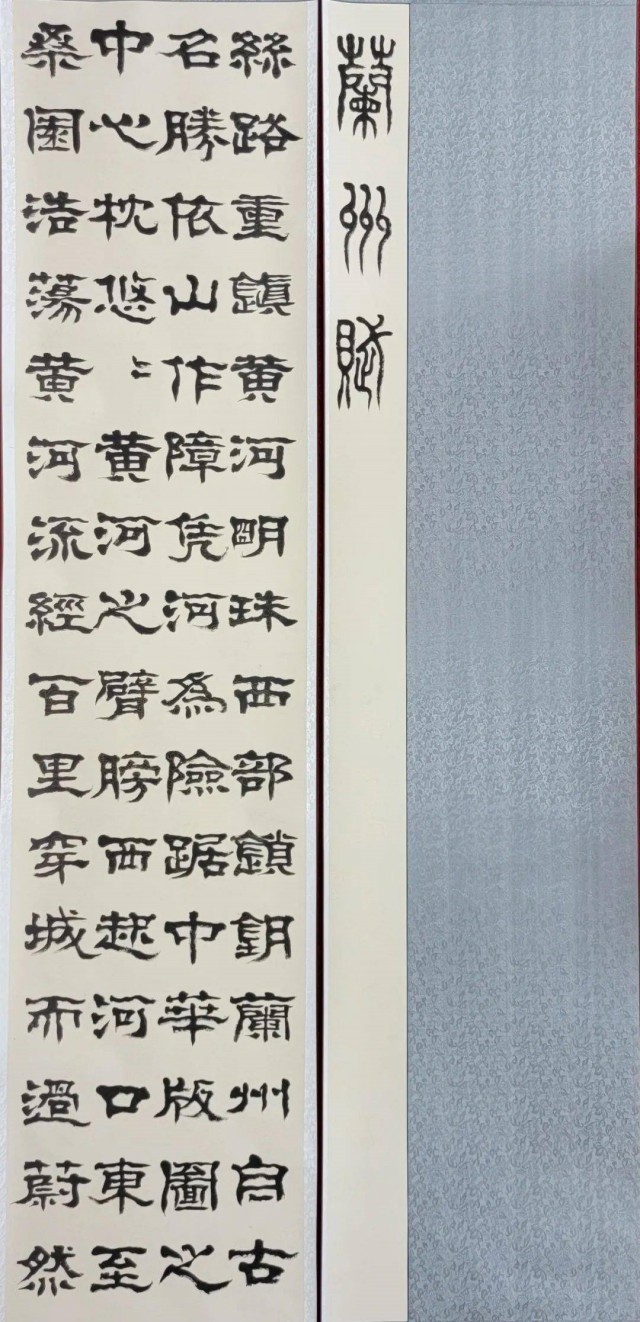 蘭州賦
絲路重鎮黃河明珠西部鎖鑰蘭州自古
名勝依山作障凭河為險踞中華版圖之
中心枕悠〻黃河之臂膀西起河口東至
桑園浩蕩黃河流經百里穿城而過蔚然